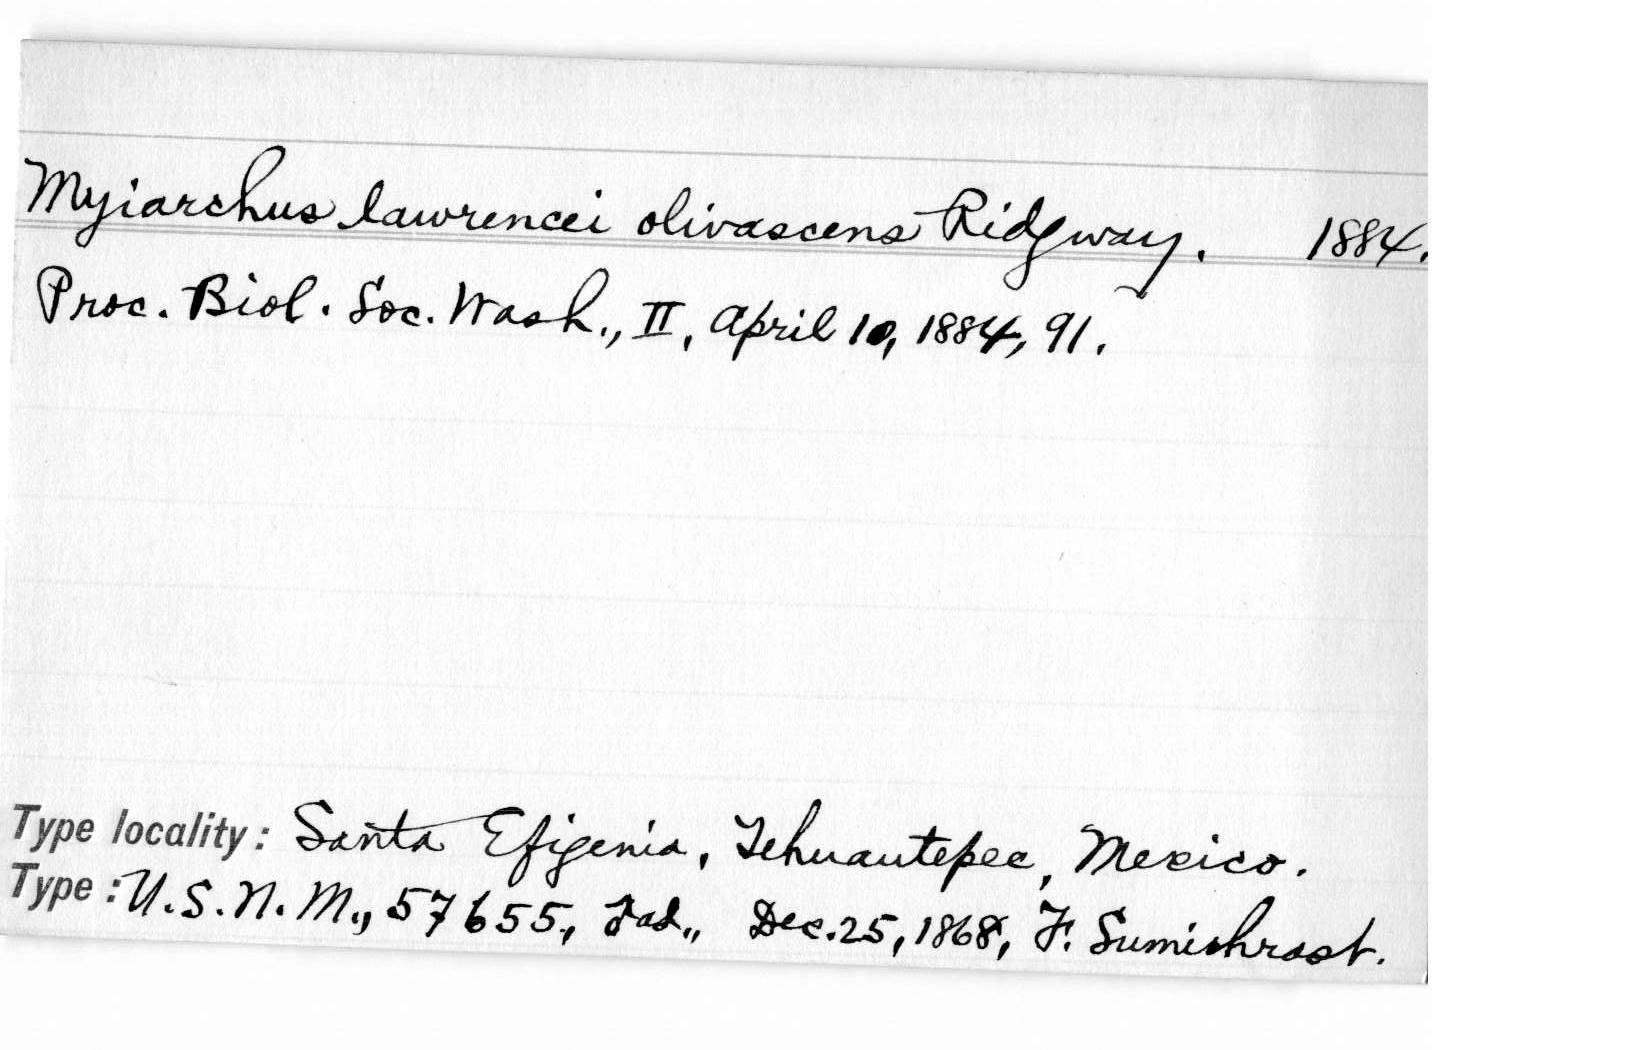 Myiarchus lawrencei olivascens Ridgway. 1884.
Proc. Biol. Soc. Wash., II, April 10, 1884, 91.
Type locality: Santa Efigenia, Tehuantepec, Mexico.
Type: U.S.N.M., 57655, Dec. 25, 1868, F. Sumichrast.